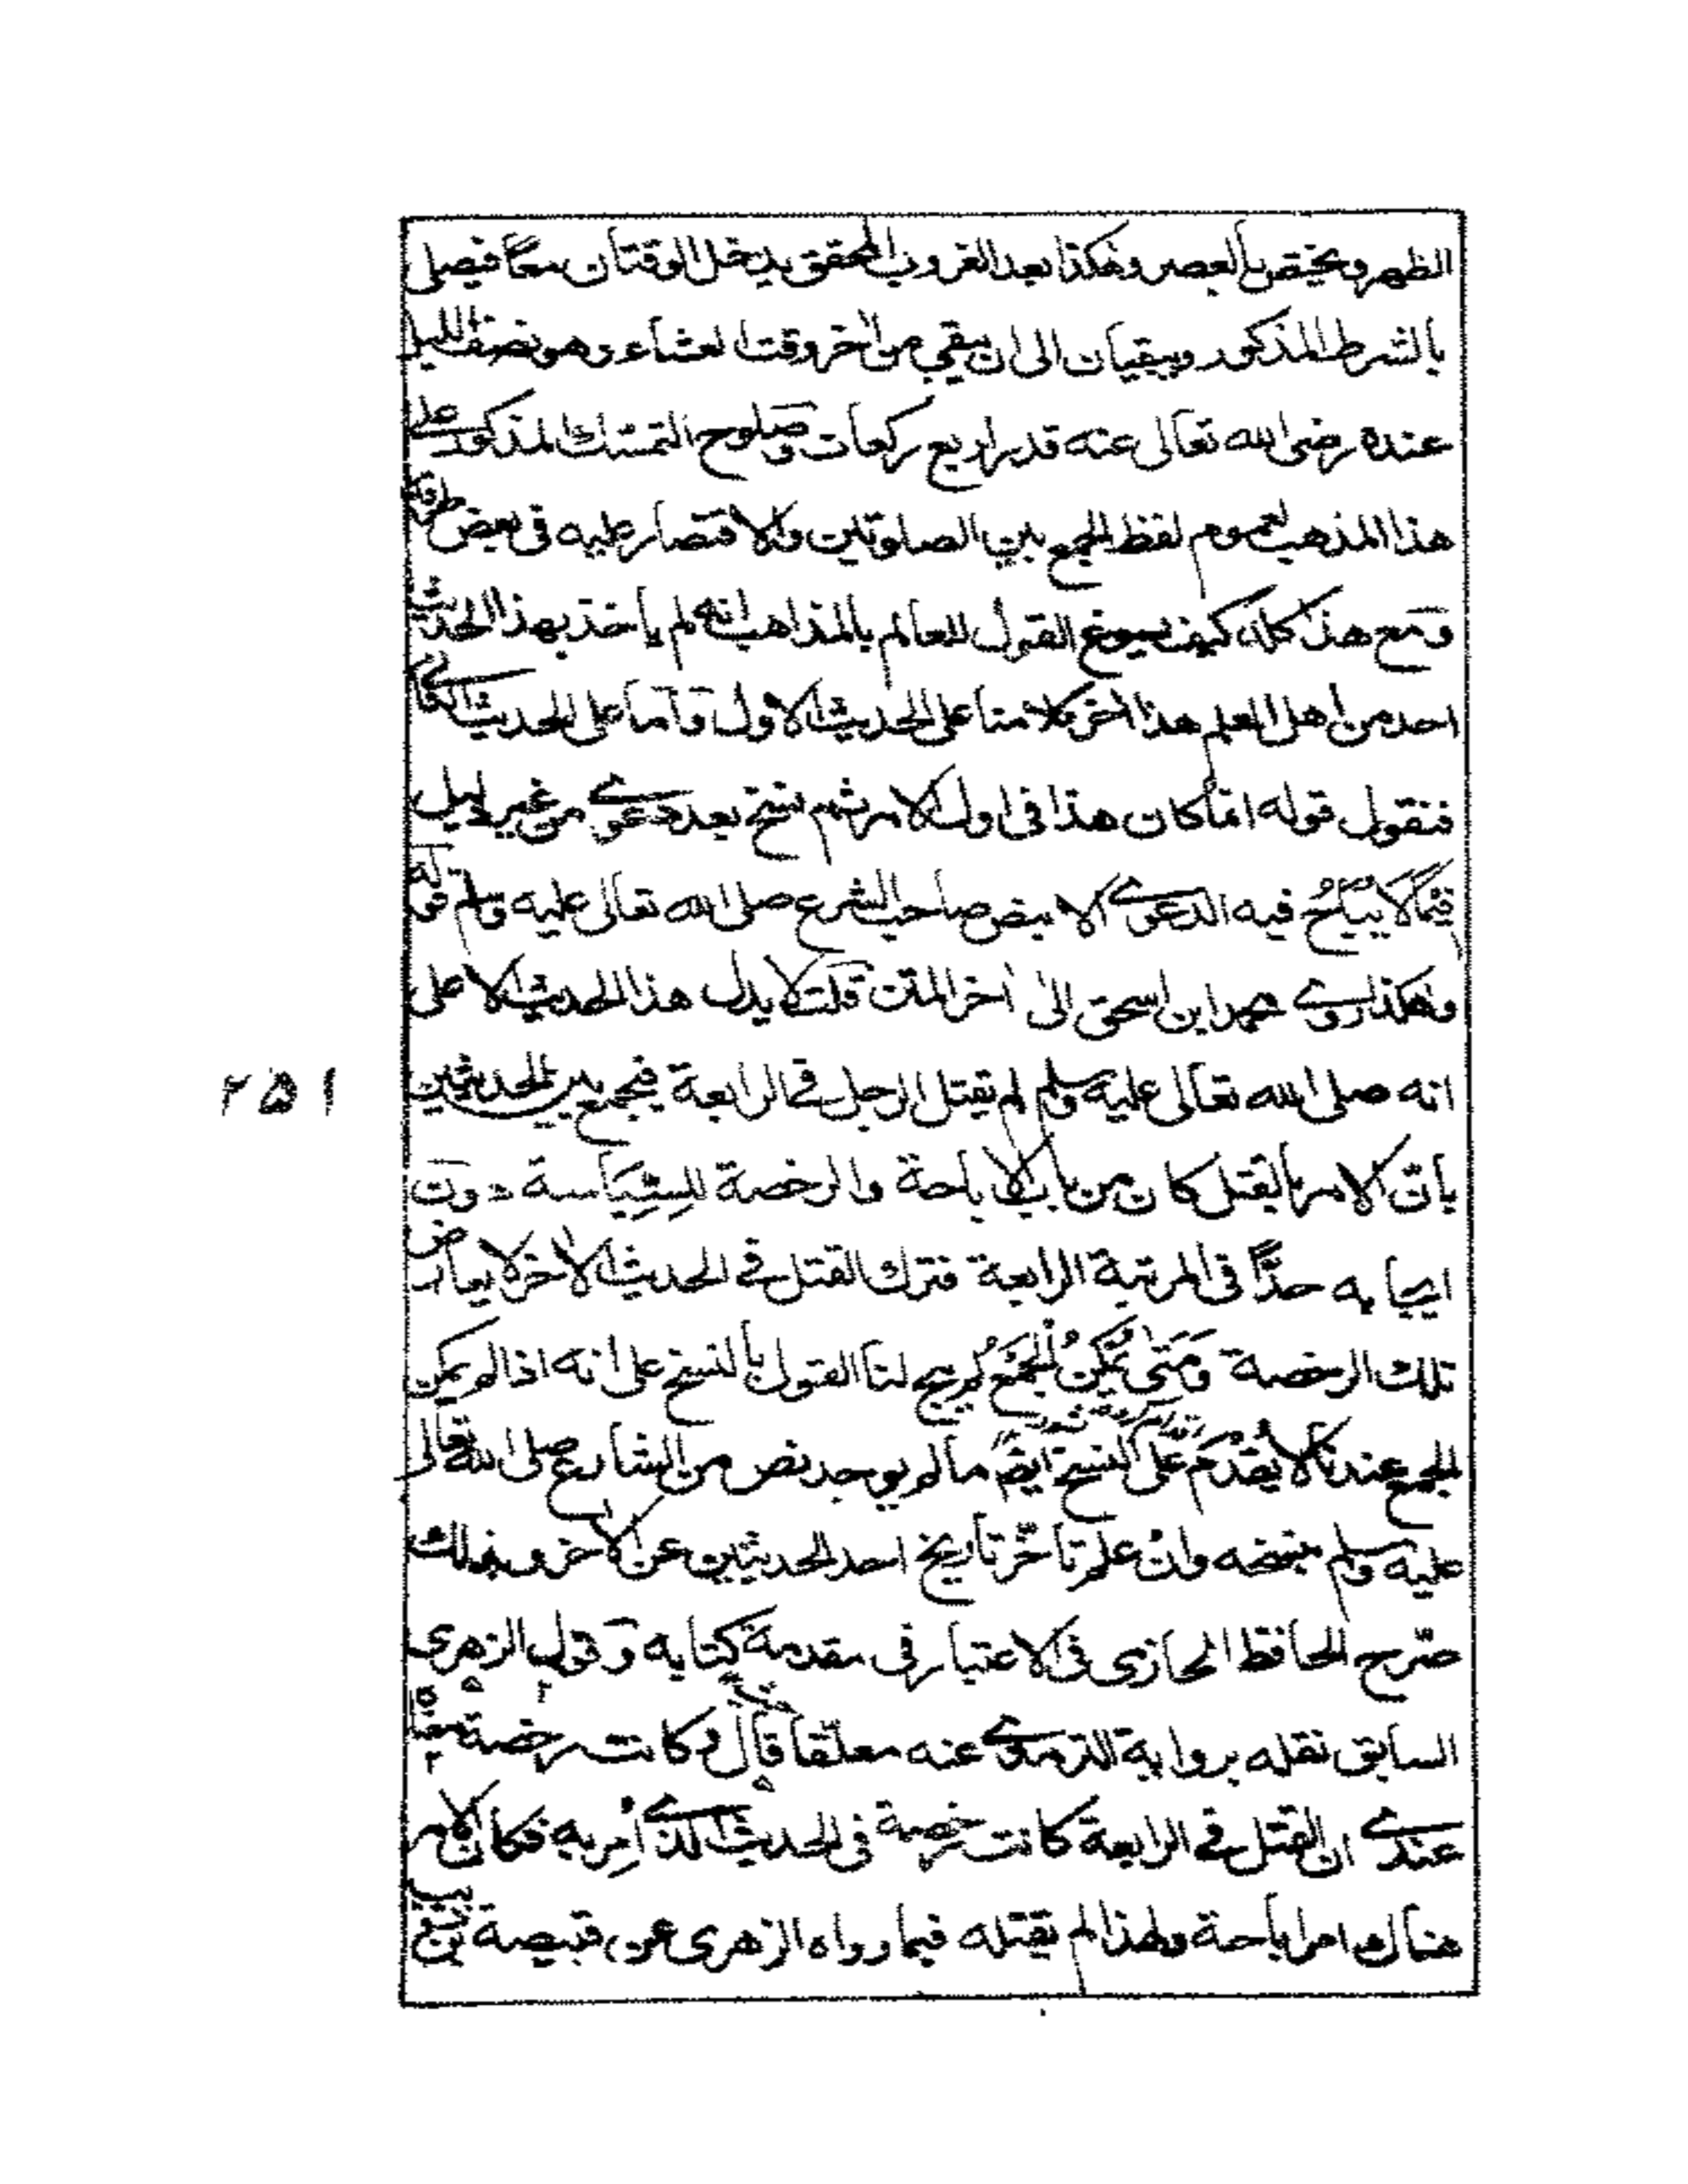 الظهر ويختص بالعصر وهكذا بعد الغروب المحقق يدخل الوقتان معا فيصلى
بالشرط المذكور ويبقيان الى ان يبقى من اخر وقت العشاء وهو نصف الليل
عنده رضى الله تعالى عنه قدر اربع ركعات وصلوح التمسك المذكور على
هذا المذهب لعموم لفظ الجمع بين الصلوتين والاقتصار عليه فى بعض طرقه
ومع هذا كله كيف يسوغ القول للعالم بالمذاهب انه لم يأخذ بهذا الحديث
احد من اهل العلم هذا اخر كلامنا على الحديث الاول وأما على الحديث الثانى
فنقول قوله انما كان هذا فى اول الامر ثم نسخ بعد دعوى من غير دليل
فيما لا يُباح فيه الدعوى الا بنص صاحب الشرع صلى الله تعالى عليه وسلم قوله
وهكذا روى محمد ابن اسحق الى اخر المتن قلت لا يدل هذا الحديث الا على
انه صلى الله تعالى عليه وسلم لم يقتل الرجل فى الرابعة فيجمع بين الحديثين
بانّ الامر بالقتل كان من باب الاباحة والرخصة للسِّيَاسة دون
ايجابه حدًّا فى المرتبة الرابعة فترك القتل فى الحديث الاخر لا يعارض
تلك الرخصة وَمَتى يُمْكِنُ الْجَمْعُ لم يبح لنا القول بالنسخ على انه اذا لم يمكن
الجمع عندنا لا يُقْدَمُ عَلَى النسخ ايضًا ما لم يوجد نص من الشارع صلى الله تعالى
عليه وسلم بنسخه وانْ علم تأخّر تاريخ احد الحديثين عن الاخر وبذلك
صرّح الحافظ الحازمى فى الاعتبار فى مقدمة كتابه وقول الزهرى
السابق نقله برواية الترمذى عنه معلّقا قال وكانت رخصة
عندى ان القتل فى الرابعة كانت رخصة فى الحديث الذى أُمِر به فكان الامر
هناك امر اباحة ولهذا لم يقتله فيما رواه الزهرى عن قبيصة بن
٢٥١